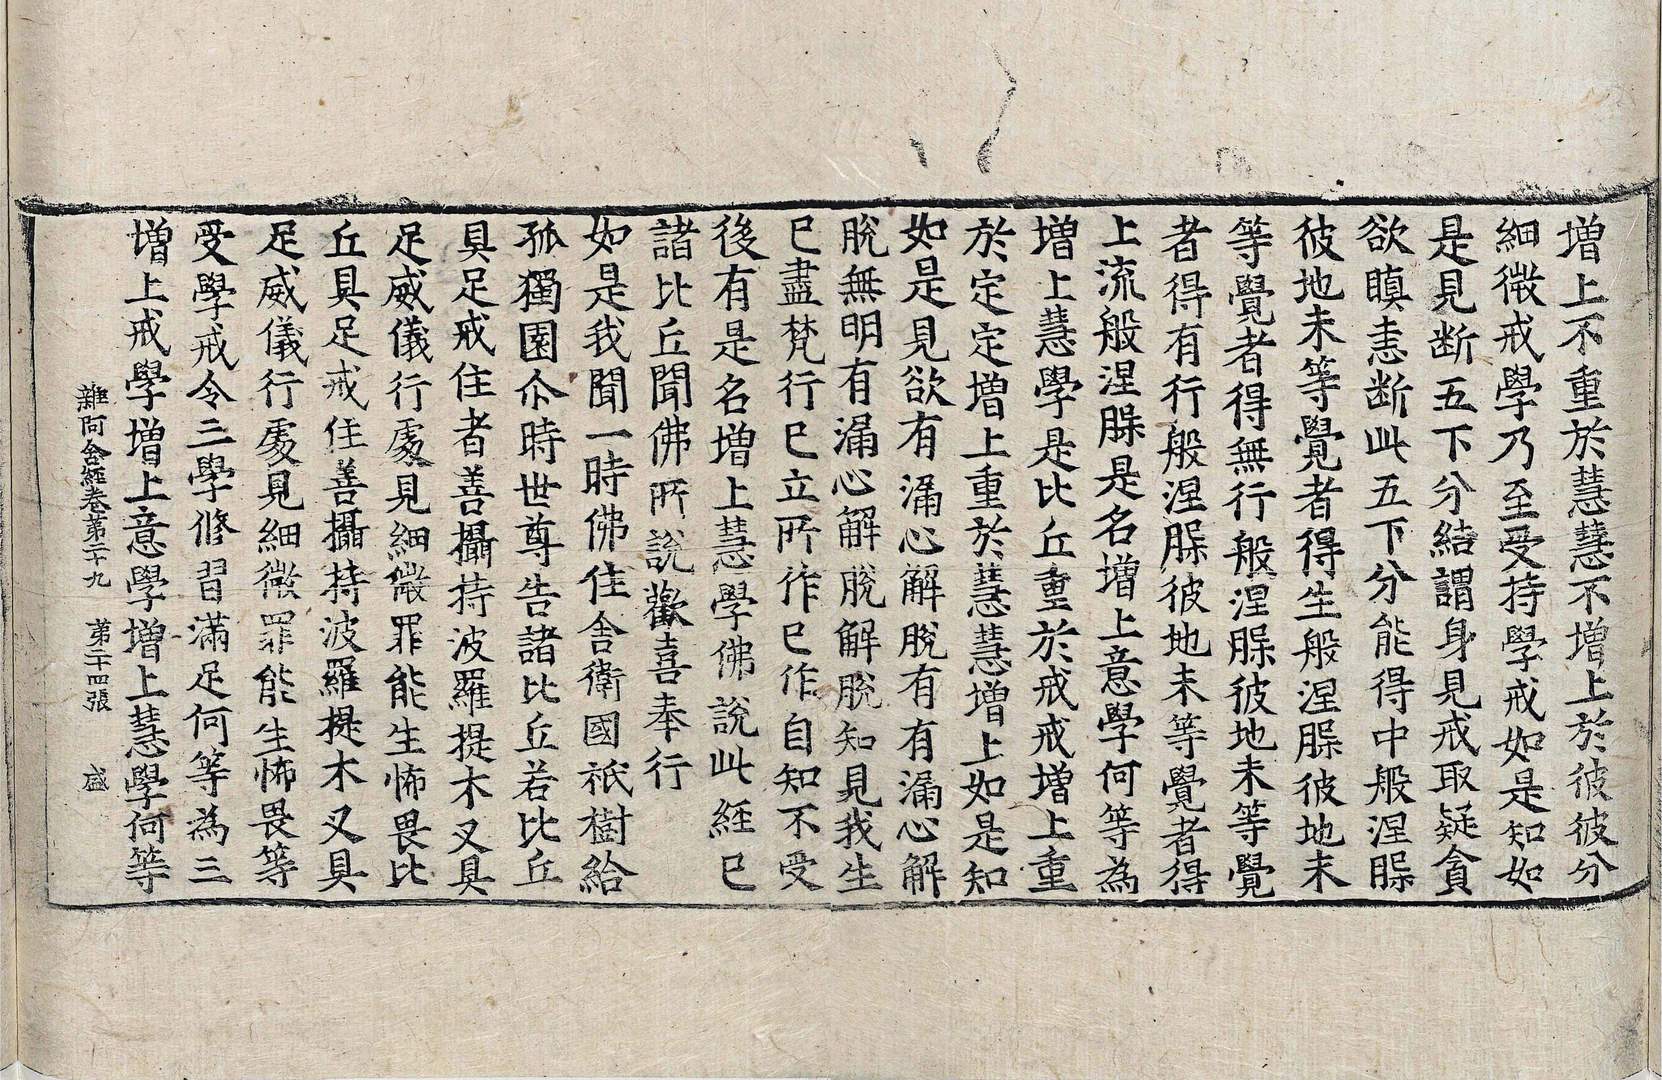 增上不重於慧慧不增上於彼彼分
細微戒學乃至受持學戒如是知如
是見断五下分結謂身見戒取疑貪
欲瞋恚断此五下分能得中般涅槃
彼地未等覺者得生般涅槃彼地未
等覺者得無行般涅槃彼地未等覺
者得有行般涅槃彼地未等覺者得
上流般涅槃是名增上意學何等為
增上慧學是比丘重於戒戒增上重
於定定增上重於慧慧增上如是知
如是見欲有漏心解脫有有漏心解
脫無明有漏心解脫解脫知見我生
已盡梵行已立所作已作自知不受
後有是名增上慧學佛說此經已
諸比丘聞佛所說歡喜奉行
如是我聞一時佛住舍衛國祇樹給
孤獨園尒時世尊告諸比丘若比丘
具足戒住者善攝持波羅提木叉具
足威儀行處見細微罪能生怖畏比
丘具足戒住善攝持波羅提木叉具
足威儀行處見細微罪能生怖畏等
受學戒令三學修習滿足何等為三
增上戒學增上意學增上慧學何等
雜阿含經卷第二十九 第二十四張 盛